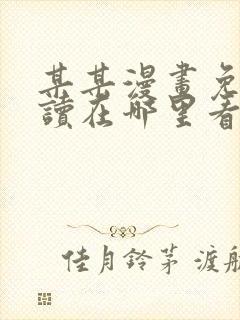 某某漫畫免
讀在哪里看
佳月鈴茅 渡航